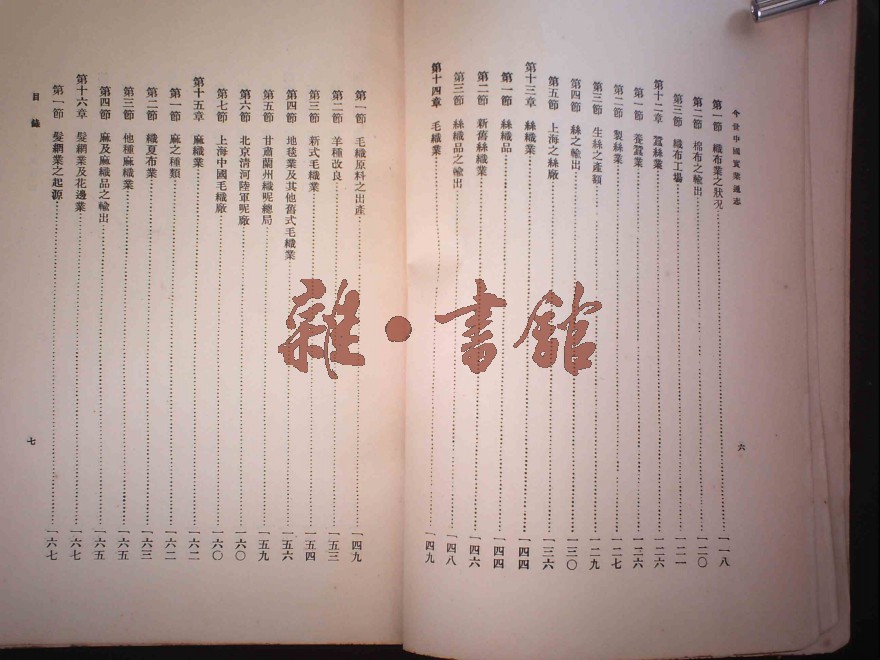 今世中國實業通志
六
第一節　織布業之狀況……一一八
第二節　棉布之輸出……一二〇
第三節　織布工場……一二一
第十二章　蠶絲業……一二六
第一節　養蠶業……一二六
第二節　製絲業……一二七
第三節　生絲之產額……一二九
第四節　絲之輸出……一三〇
第五節　上海之絲廠……一三六
第十三章　絲織業……一四四
第一節　絲織品……一四四
第二節　新舊絲織業……一四六
第三節　絲織品之輸出……一四八
第十四章　毛織業……一四九
第一節　毛織原料之出產……一四九
第二節　羊種改良……一五三
第三節　新式毛織業……一五四
第四節　地毯業及其他舊式毛織業……一五六
第五節　甘肅蘭州織呢總局……一五九
第六節　北京清河陸軍呢廠……一六〇
第七節　上海中國毛織廠……一六〇
第十五章　麻織業……一六二
第一節　麻之種類……一六二
第二節　織夏布業……一六三
第三節　他種麻織業……一六五
第四節　麻及麻織品之輸出……一六五
第十六章　髮網業及花邊業……一六七
第一節　髮網業之起源……一六七
目錄
七
雜·書館